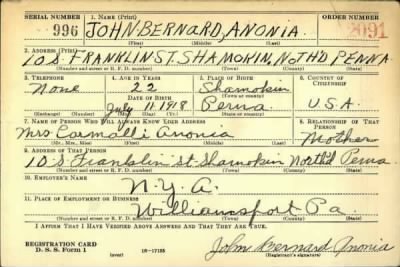 SERIAL NUMBER 1. NAME (Print) ORDER NUMBER
996 JOHN BERNARD ANONIA 3091
(First) (Middle) (Last)
2. ADDRESS (Print)
10 S. FRANKLIN ST. SHAMOKIN, NOTH'D PENNA
(Number and street or R. F. D. number) (Town) (County) (State)
3. TELEPHONE 4. AGE IN YEARS 5. PLACE OF BIRTH 6. COUNTRY OF CITIZENSHIP
None 22 Shamokin
DATE OF BIRTH (Town or county)
July 11, 1918 Penna U.S.A.
(Mo.) (Day) (Yr.) (State or country)
7. NAME OF PERSON WHO WILL ALWAYS KNOW YOUR ADDRESS 8. RELATIONSHIP OF THAT PERSON
Mrs Carmalli Anonia Mother
(Mr., Mrs., Miss) (First) (Middle) (Last)
9. ADDRESS OF THAT PERSON
10 S. Franklin St. Shamokin North'd Penna.
(Number and street or R. F. D. number) (Town) (County) (State)
10. EMPLOYER'S NAME
N.Y.A.
11. PLACE OF EMPLOYMENT OR BUSINESS
Williamsport Pa.
(Number and street or R. F. D. number) (Town) (County) (State)
I AFFIRM THAT I HAVE VERIFIED ABOVE ANSWERS AND THAT THEY ARE TRUE.
REGISTRATION CARD
D. S. S. Form 1 (over) 16-17105 John Bernard Anonia
(Registrant's signature)